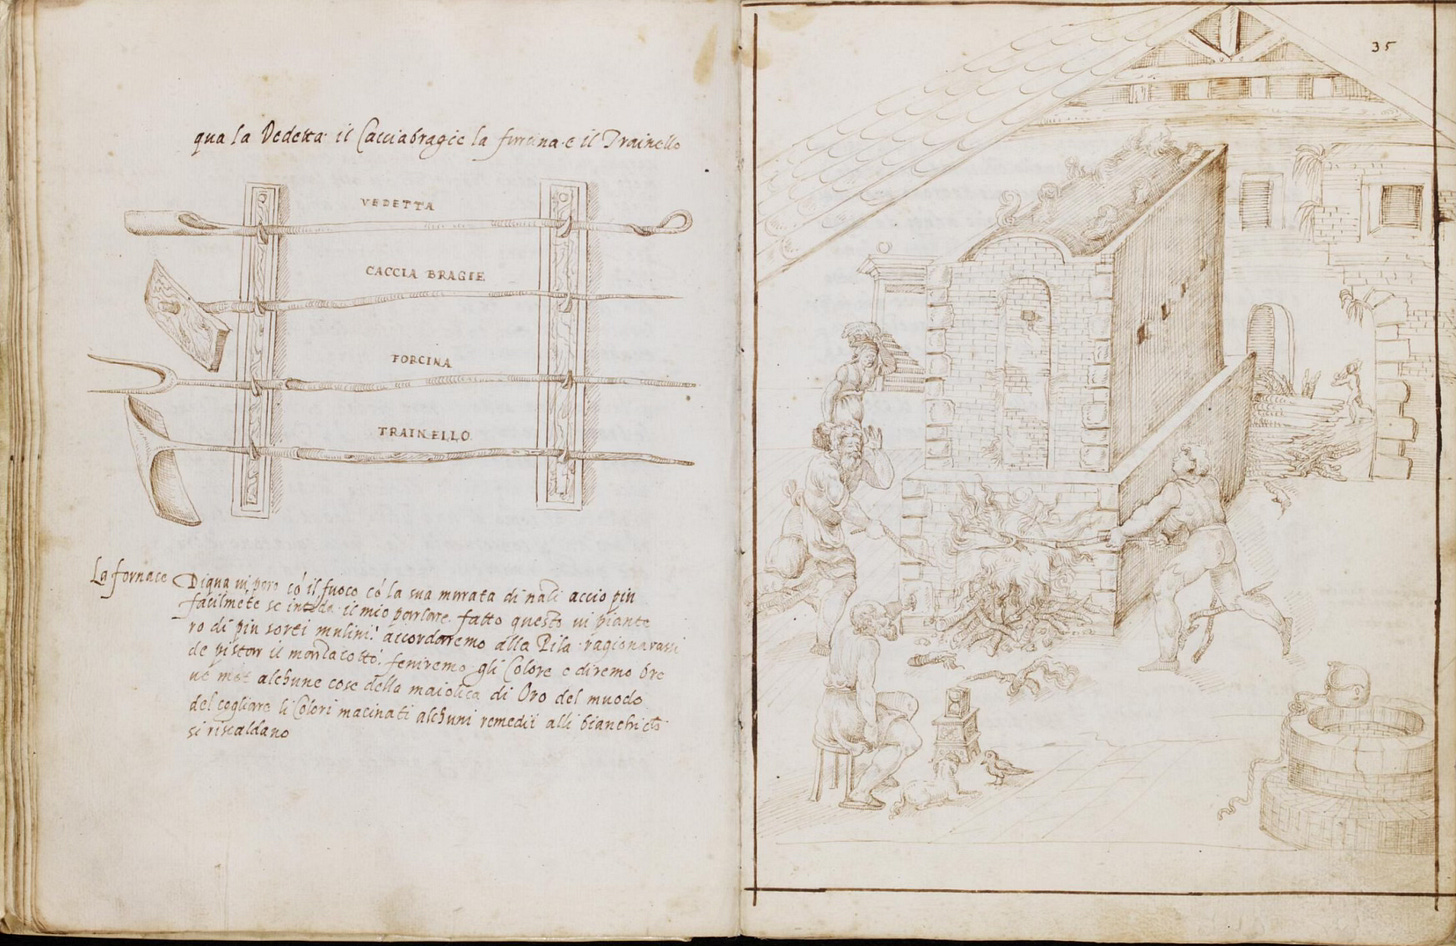 qua la Vedetta il Cacciabragie la forcina e il Trainello
VEDETTA
CACCIA BRAGIE
FORCINA
TRAINELLO
La fornace Digna vi pero có il fuoco có la sua murata di nali accio piu
facilméte se inteda il mio parlare fatto questo vi piante
ro di piu sorti mulini accordaremo alla Pila ragionarassi
de pistar il marzacotto feniremo gli Colore e diremo bre
ve alchune cose della maiolica di Oro del muodo
del cogliare li Colori macinati alchuni remedii alli bianchi
si riscaldano
35